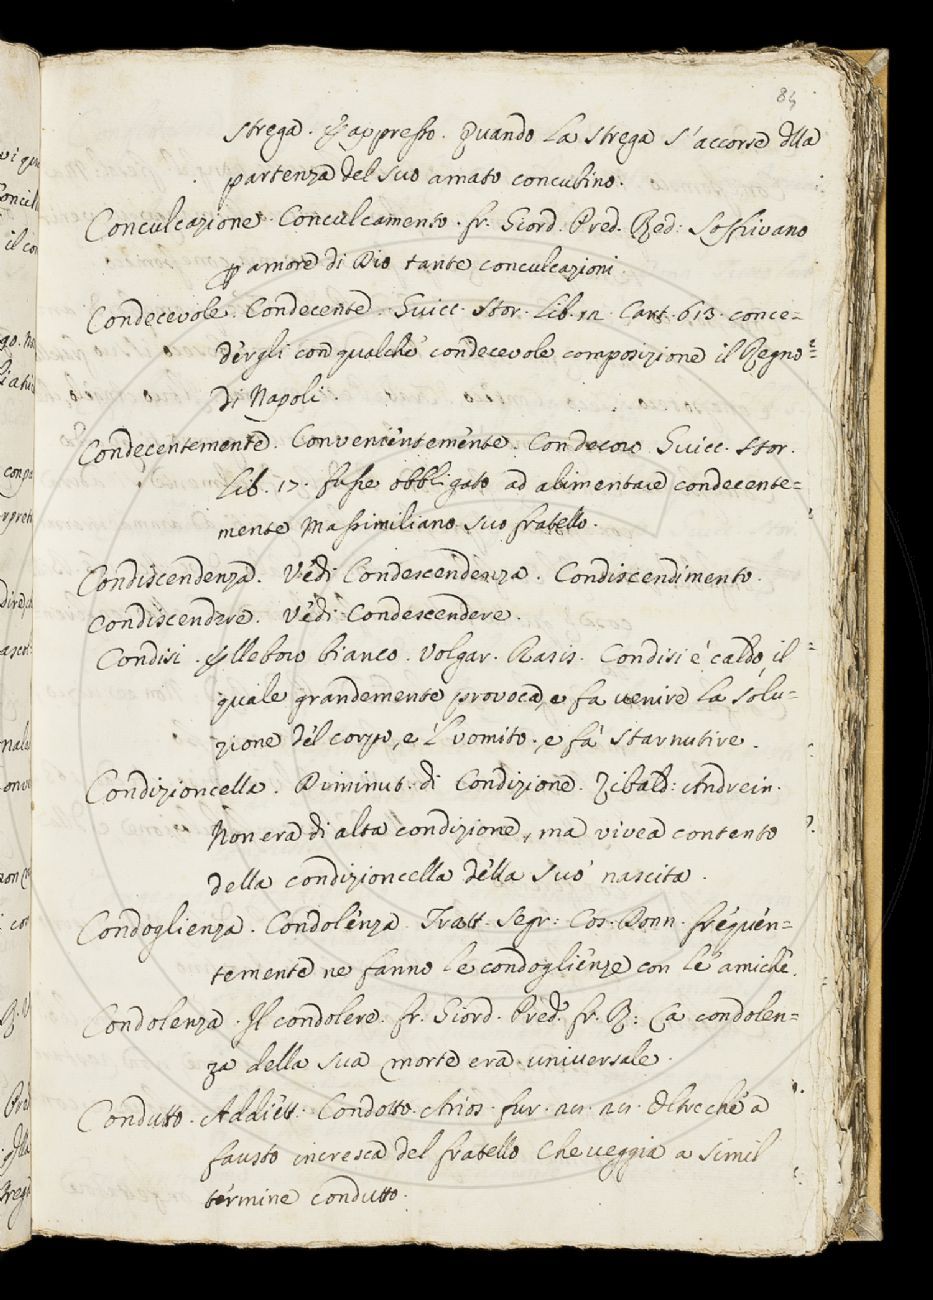 84
strega. E appresso. Quando la strega s'accorse dlla
partenza del suo amato concubino.
Conculcazione. Conculcamento. fr. Giord. Pred. Red: Soffrivano
p amore di Dio tante conculcazioni.
Condecevole. Condecente. Guicc. Stor. Lib. 12. Cart. 613. conce=
dergli con qualche condecevole composizione il Regno
di Napoli.
Condecentemente. Convenientemente. Con decoro Guicc. Stor.
Lib. 17. fusse obbligato ad alimentare condecente=
mente Massimiliano suo fratello.
Condiscendenza. Vedi Condescendenza. Condiscendimento.
Condiscendere. Vedi Condescendere.
Condisi. Elleboro bianco. Volgar. Rasis. Condisi é caldo, il
quale grandemente provoca, e fa venire la solu=
zione del corpo, e l'vomito, e fa starnutire.
Condizioncella. Diminut. di Condizione. Zibald: Andrein.
Non era di alta condizione, ma vivea contento
della condizioncella della suo nascita.
Condoglienza. Condolenza. Tratt. Segr: Cos. Donn. frequen=
temente ne fanno le condoglienze con le amiche.
Condolenza. Il condolere. fr. Giord. Pred. fr. R: La condolen=
za della sua morte era universale.
Condutto. Addiett. Condotto. Arios. fur. Oltreché a
fausto incresca del fratello Che veggia a simil
termine condutto.